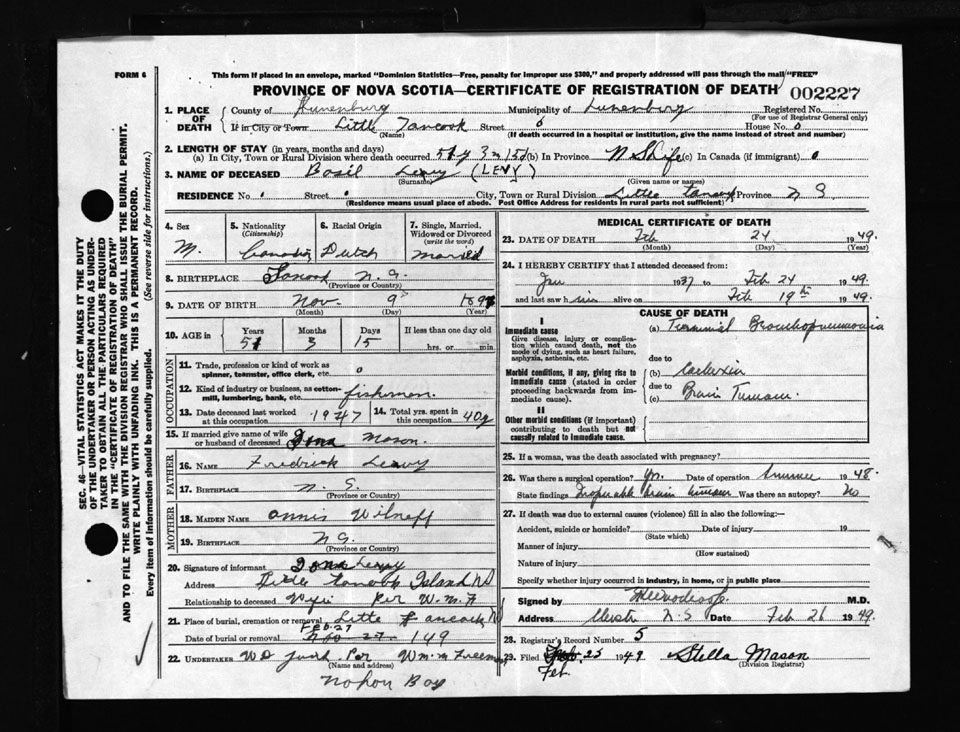 FORM 6
This form if placed in an envelope, marked "Dominion Statistics—Free, penalty for improper use $300," and properly addressed will pass through the mail "FREE"
PROVINCE OF NOVA SCOTIA—CERTIFICATE OF REGISTRATION OF DEATH 002227
1. PLACE OF DEATH County of Lunenburg Municipality of Lunenburg Registered No.
(For use of Registrar General only)
If in City or Town Little Tancook Street 0 House No. 0
(Name) (If death occurred in a hospital or institution, give the name instead of street and number)
2. LENGTH OF STAY (in years, months and days)
(a) In City, Town or Rural Division where death occurred 51 y 3 m 15 d (b) In Province N S Life (c) In Canada (if immigrant) 0
3. NAME OF DECEASED Basil Leavy (LEVY)
(Surname) (Given name or names)
RESIDENCE No. Street City, Town or Rural Division Little Tancook Province N S
(Residence means usual place of abode. Post Office Address for residents in rural parts not sufficient)
4. Sex 5. Nationality (Citizenship) 6. Racial Origin 7. Single, Married, Widowed or Divorced (write the word)
M. Canadian Dutch Married
8. BIRTHPLACE Tancook N. S.
(Province or Country)
9. DATE OF BIRTH Nov. 9 1897
(Month) (Day) (Year)
10. AGE in Years Months Days If less than one day old
51 3 15 hrs. or min.
OCCUPATION
11. Trade, profession or kind of work as spinner, teamster, office clerk, etc. 0
12. Kind of industry or business, as cotton-mill, lumbering, bank, etc. fisherman
13. Date deceased last worked at this occupation 1947 14. Total yrs. spent in this occupation 40 y
15. If married give name of wife or husband of deceased Iona Mason.
FATHER
16. NAME Fredrick Leavy
17. BIRTHPLACE N. S.
(Province or Country)
MOTHER
18. MAIDEN NAME Annis Wilneff
19. BIRTHPLACE N S.
(Province or Country)
20. Signature of informant Iona Leavy
Address Little Tancook Island N S
Relationship to deceased Wife Per W. M. F
21. Place of burial, cremation or removal Little Tancook N S
FEB. 27
Date of burial or removal 27 149
22. UNDERTAKER W D Per Wm. M Freeman
(Name and address)
Bay
MEDICAL CERTIFICATE OF DEATH
23. DATE OF DEATH Feb 24 1949.
(Month) (Day) (Year)
24. I HEREBY CERTIFY that I attended deceased from:
Jan 1937 to Feb 24 1949.
and last saw him alive on Feb 19th 1949.
CAUSE OF DEATH
I
Immediate cause
Give disease, injury or complication which caused death, not the mode of dying, such as heart failure, asphyxia, asthenia, etc.
(a) Terminal Bronchopneumonia
due to
Morbid conditions, if any, giving rise to immediate cause (stated in order proceeding backwards from immediate cause).
(b) Cachexia
due to
(c) Brain Tumour.
II
Other morbid conditions (if important) contributing to death but not causally related to immediate cause.
25. If a woman, was the death associated with pregnancy?
26. Was there a surgical operation? Yes. Date of operation Summer 1948.
State findings Inoperable brain tumour Was there an autopsy? No
27. If death was due to external causes (violence) fill in also the following:—
Accident, suicide or homicide? Date of injury 19
(State which)
Manner of injury
(How sustained)
Nature of injury
Specify whether injury occurred in industry, in home, or in public place
Signed by M.D.
Address Chester N. S Date Feb 26 1949.
28. Registrar's Record Number 5
29. Filed 25 1949 Stella Mason
(Division Registrar)
Feb.
SEC. 46—VITAL STATISTICS ACT MAKES IT THE DUTY OF THE UNDERTAKER OR PERSON ACTING AS UNDERTAKER TO OBTAIN ALL THE PARTICULARS REQUIRED IN THE "CERTIFICATE OF REGISTRATION OF DEATH"
AND TO FILE THE SAME WITH THE DIVISION REGISTRAR WHO SHALL ISSUE THE BURIAL PERMIT.
WRITE PLAINLY WITH UNFADING INK. THIS IS A PERMANENT RECORD.
Every item of information should be carefully supplied. (See reverse side for instructions.)